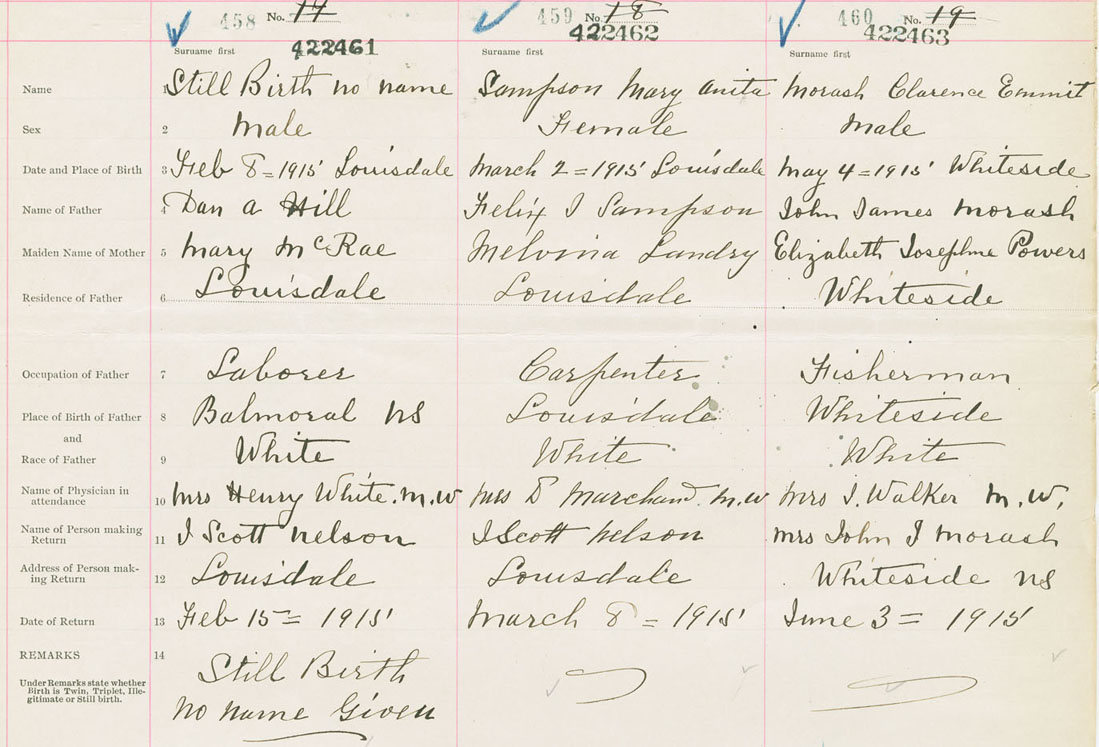 458 No. 17 459 No. 18 460 No. 19
422461 422462 422463
Surname first Surname first Surname first
Name 1 Still Birth no name Sampson Mary Anita Morash Clarence Emmit
Sex 2 Male Female Male
Date and Place of Birth 3 Feb 8 = 1915 Louisdale March 2 = 1915 Louisdale May 4 = 1915 Whiteside
Name of Father 4 Dan A Hill Felix J Sampson John James Morash
Maiden Name of Mother 5 Mary McRae Melvina Landry Elizabeth Josephine Powers
Residence of Father 6 Louisdale Louisdale Whiteside
Occupation of Father 7 Laborer Carpenter Fisherman
Place of Birth of Father 8 Balmoral NS Louisdale Whiteside
and
Race of Father 9 White White White
Name of Physician in
attendance 10 Mrs Henry White. M.W Mrs D Marchand. M.W Mrs J. Walker M.W.
Name of Person making
Return 11 J Scott Nelson J Scott Nelson Mrs John J Morash
Address of Person mak-
ing Return 12 Louisdale Louisdale Whiteside NS
Date of Return 13 Feb 15 = 1915 March 8 = 1915 June 3 = 1915
REMARKS 14 Still Birth
Under Remarks state whether
Birth is Twin, Triplet, Ille-
gitimate or Still birth.
No name Given